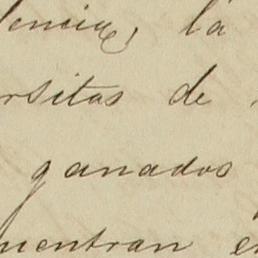 encia, la
rsitas de
ganados
uentran e